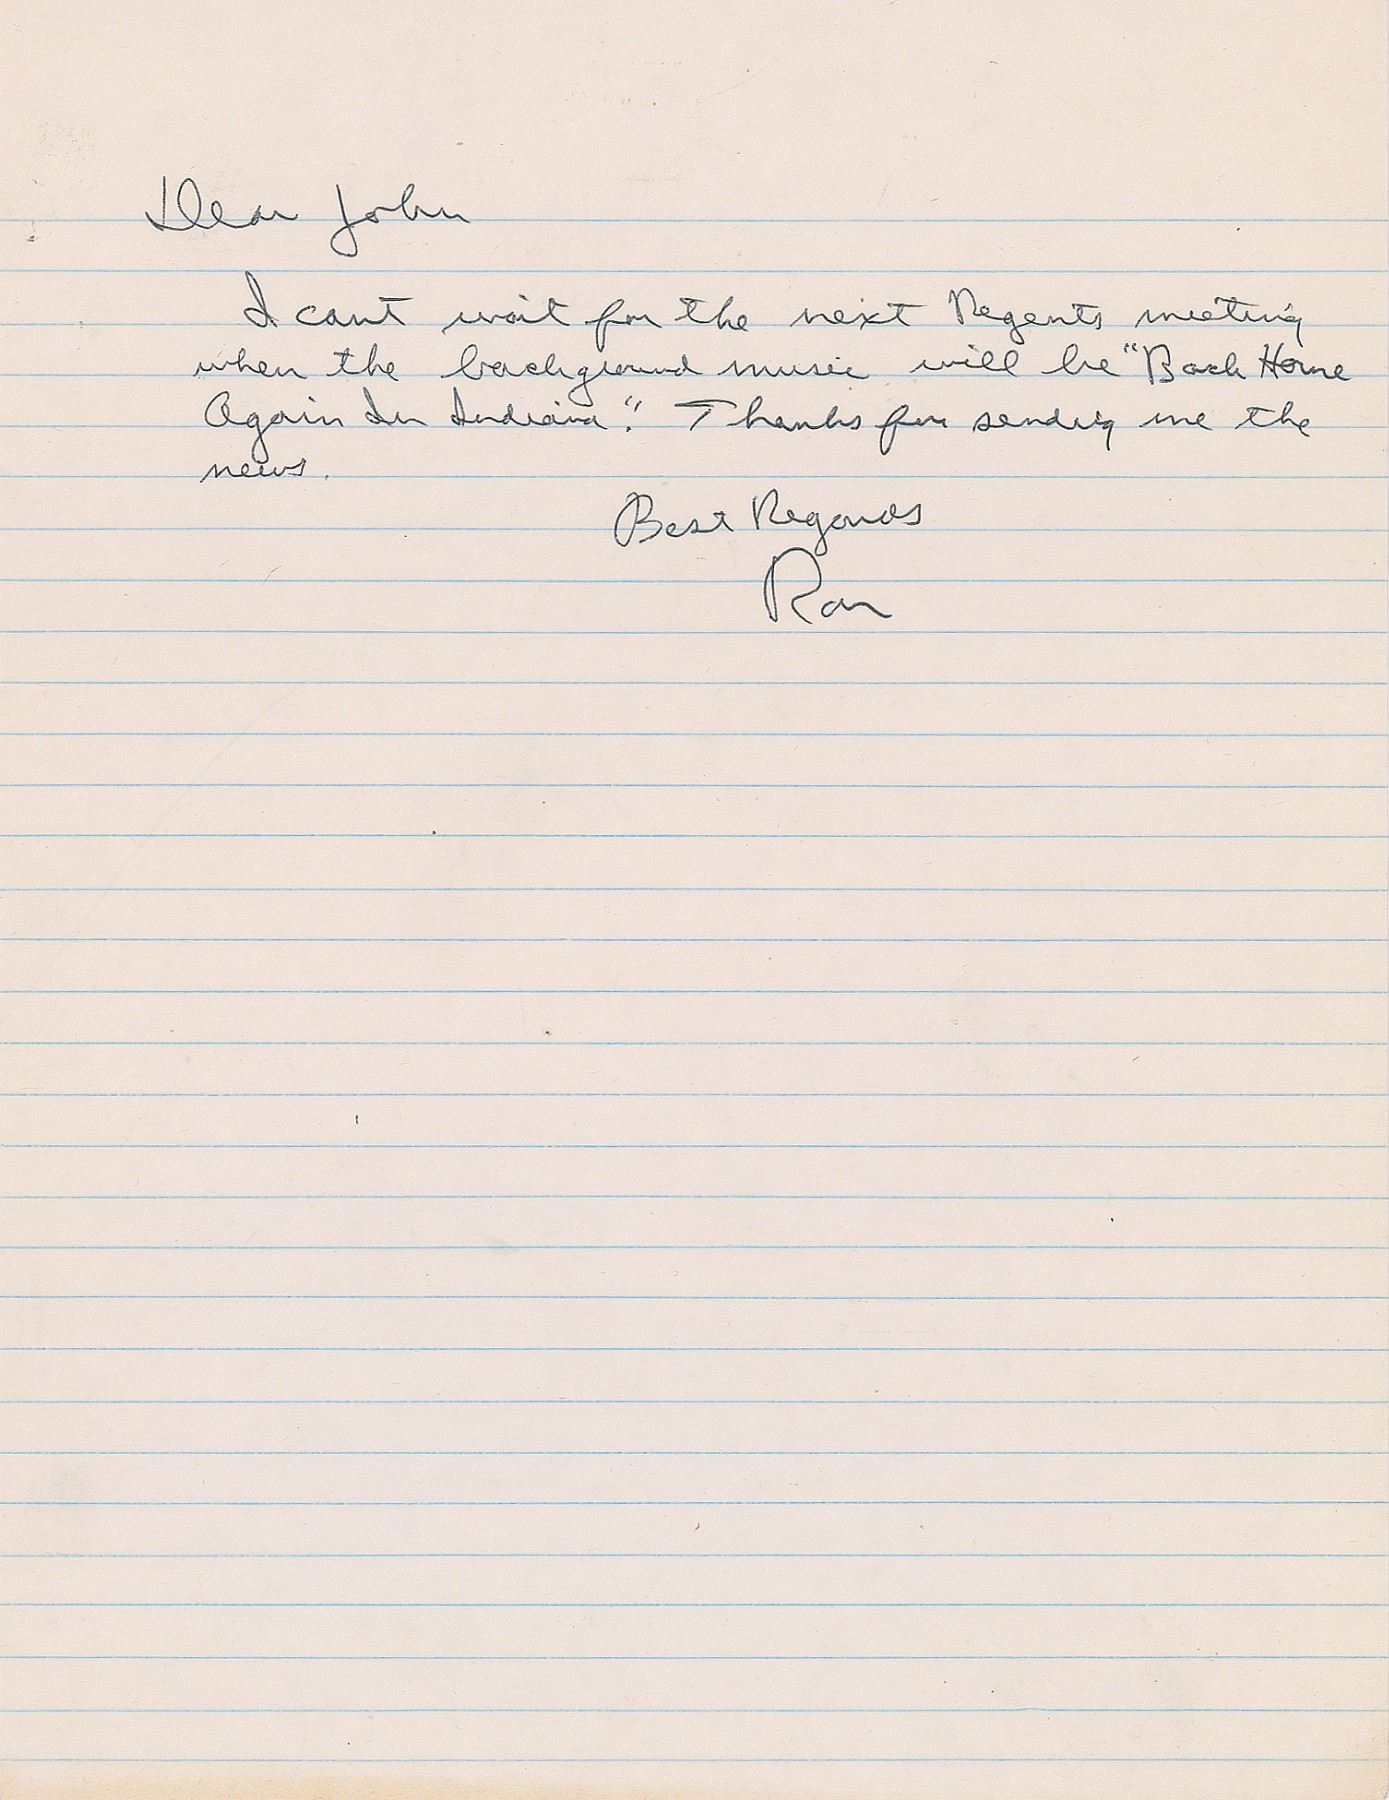 Dear John
I cant wait for the next Regents meeting
when the background music will be "Back Home
Again In Indiana." Thanks for sending me the
news.
Best Regards
Ron